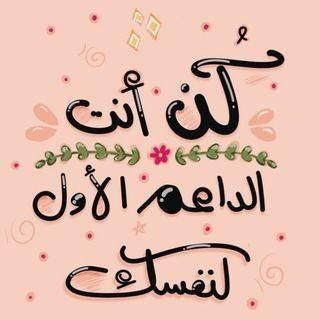 كُن أنت
الداعم الأول
لنفسك